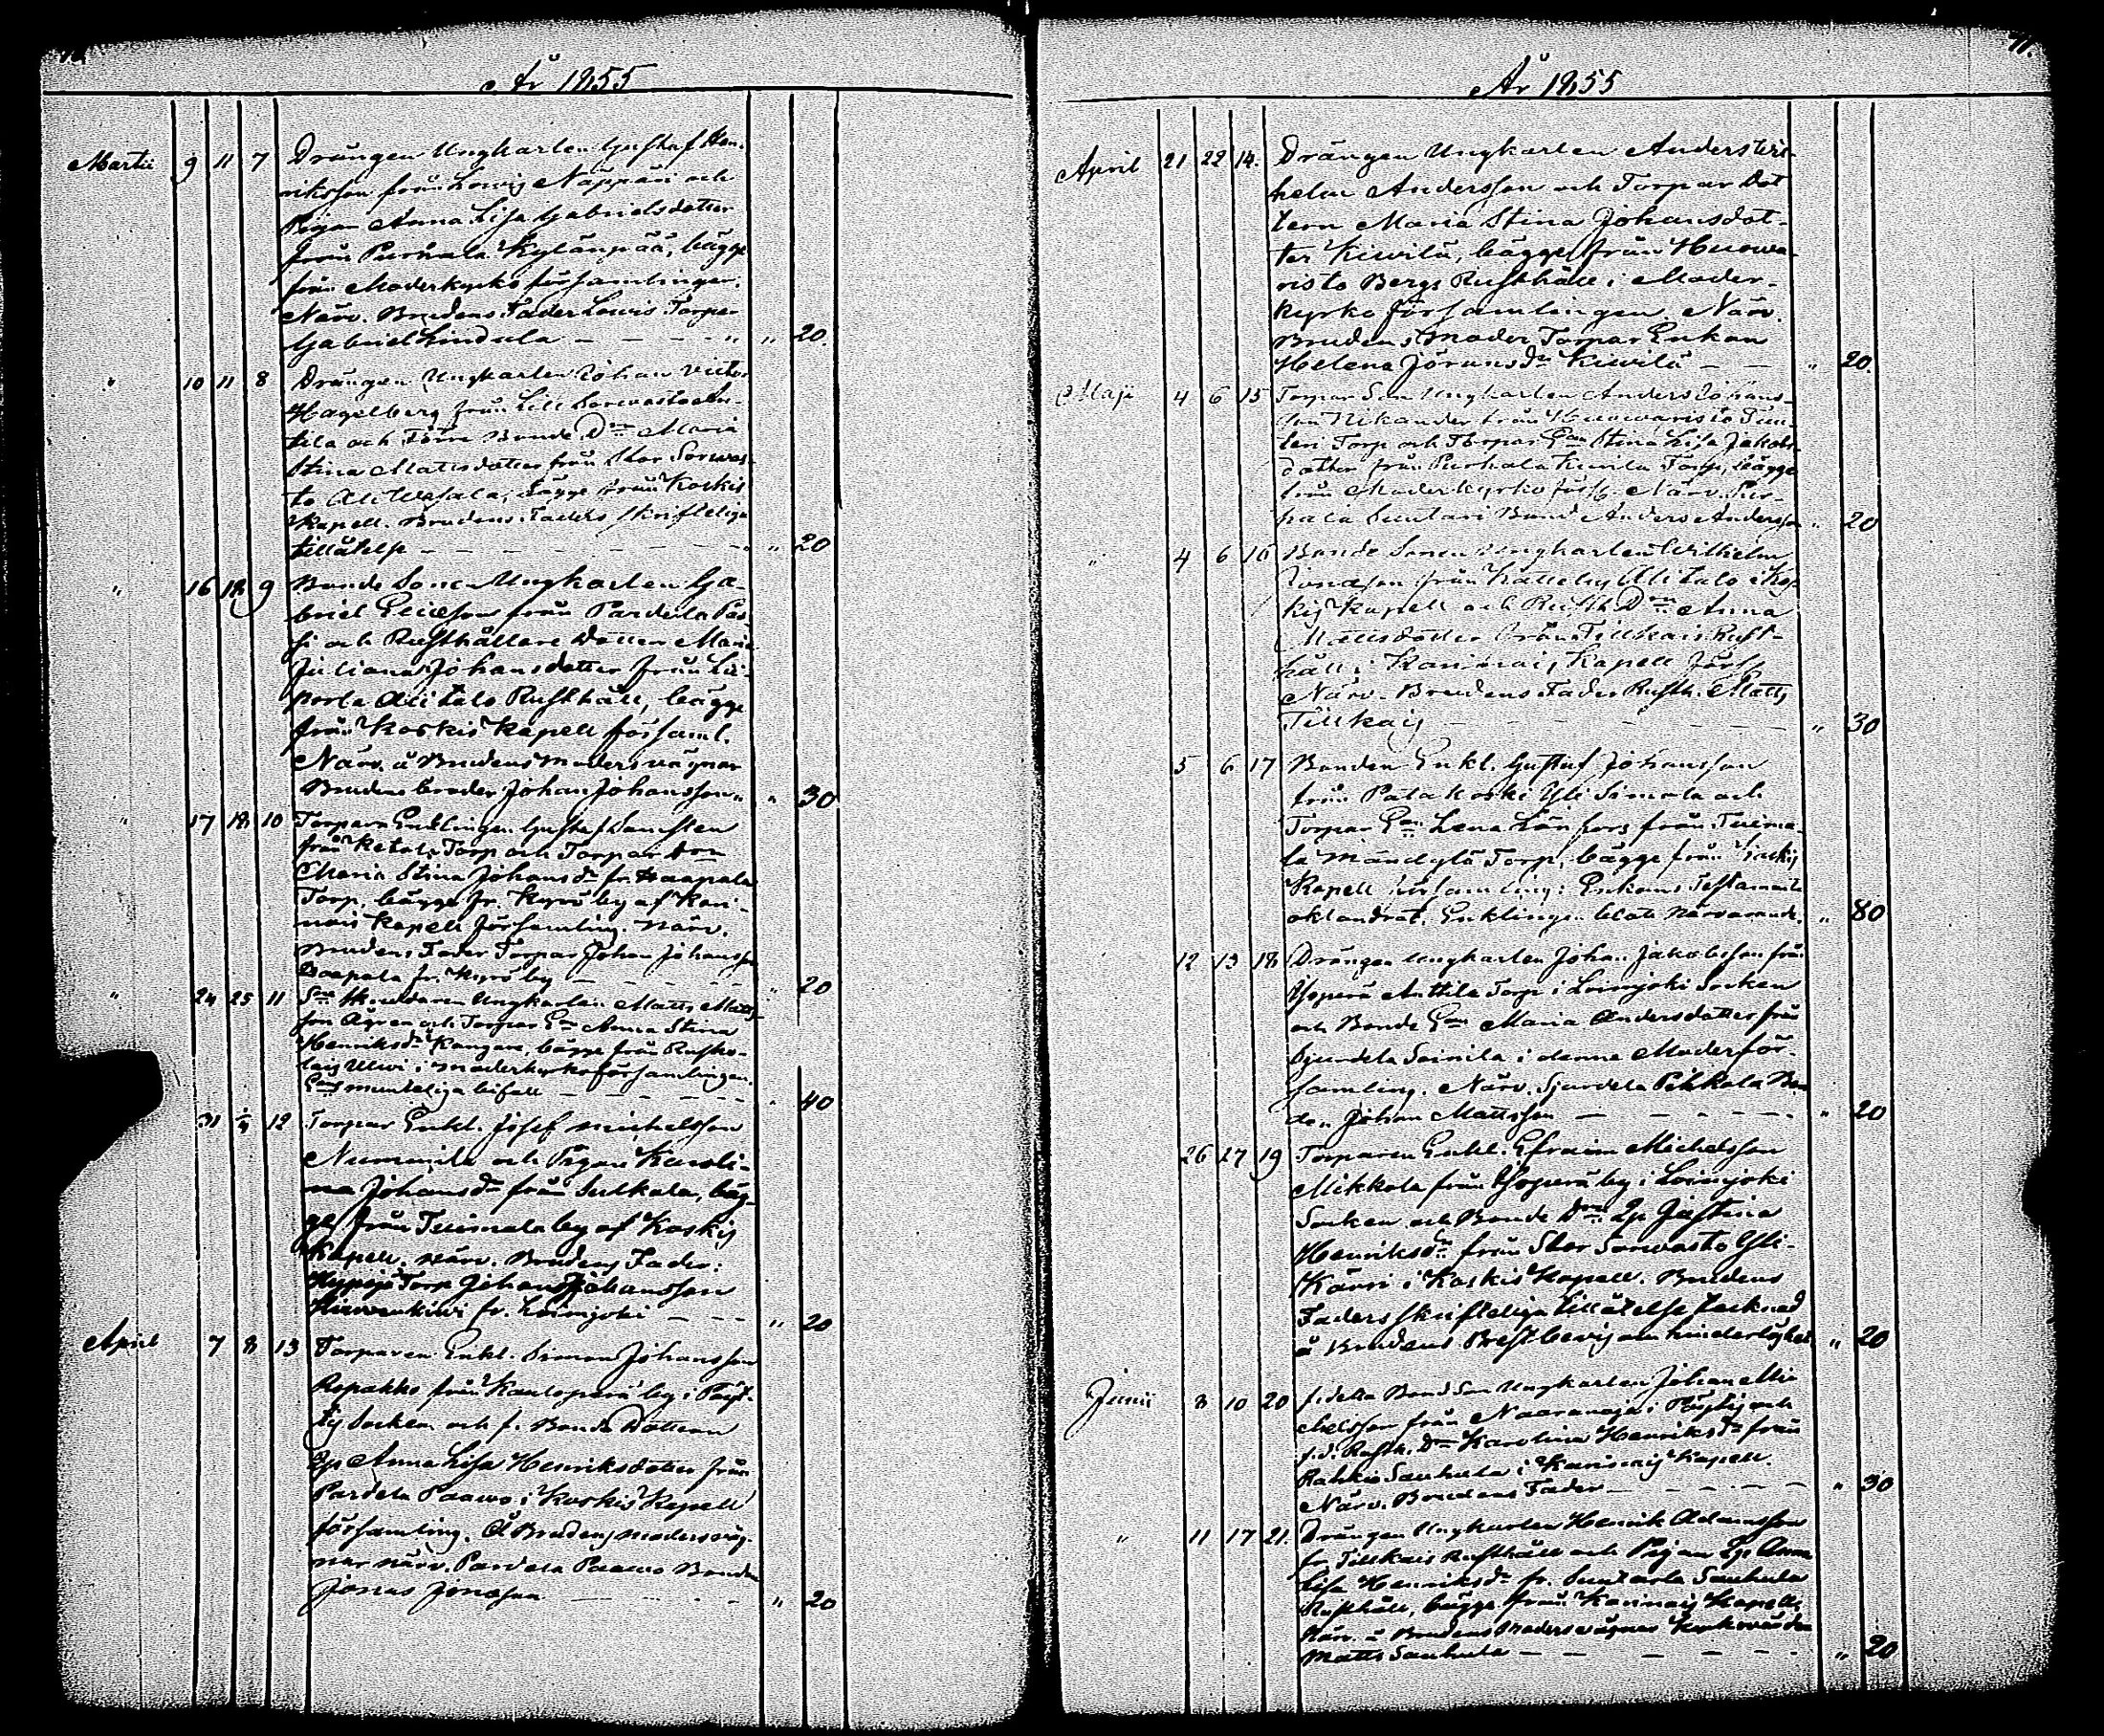 År 1855
Martii 9 11 7 Drängen Ungkarlen Gustaf Hen-
riksson från Lowis Näppäri och
Pigan Anna Lisa Gabrielsdotter
från Purhala Kylänpää, bägge
från Moderkyrko församlingen.
Närv. Brudens Fader Lowis Torpar
Gabriel Lindula — — — „ „ 20.
„ 10 11 8 Drängen Ungkarlen Johan Victor
Hagelberg från Lill Sorwasto An-
tila och Bonde D:n Maria
Stina Mattsdotter från Stor Sorwas-
to Ali Wesala, bägge från Koskis
Kapell. Brudens Faders skrifteliga
tillåtelse — — — „ 20
„ 16 18 9 Bonde Sonen Ungkarlen Ga-
briel Eliasson från Pardela Pas-
si och Rusthållare Dottern Maria
Juliana Johansdotter från Lii-
pola Ali talo Rusthåll, bägge
från Koskis Kapell församl.
Närv. å Brudens moders vägnar
Brudens broder Johan Johansson „ „ 30
„ 17 18 10 Torparen Enklingen Gustaf
från Ketola Torp och Torpar D:n
Maria Stina Johansd:r fr. Haapala
Torp, bägge fr. Kyrö by af Kari-
nais Kapell församling. Närv.
Brudens Fader Torpar Johan Johansson
Haapala fr. Kyrö by — — — „ 20
„ 24 25 11 Ungkarlen Matts Matts-
son och Torpar E:an Anna Stina
Henriksd:r Kangare, bägge från Rusko-
i moderkyrkoförsamlingen.
munteliga bifall — — — „ 40
31 1/4 12 Torpar Enkl. Josef Michelsson
Nummila och Pigan Karoli-
na Johansd:r från Sulkala, bäg-
ge från Tuimala by af Koskis
Kapell. Närv. Brudens Fader:
Torp. Johan Johansson
fr. Loimijoki — — — „ 20
April 7 8 13 Torparen Enkl. Simon Johansson
Ropakko från Kaulanperä by i Pöy-
tis Socken och f. Bonde Dottern
Anna Lisa Henriksdotter från
Pardela Paawo i Koskis Kapell
församling. Å Brudens moders väg-
nar närv. Pardela Paawo Bonde
Jonas Jonasson — — — „ 20
År 1855 71.
April 21 22 14. Drängen Ungkarlen Anders Wil-
helm Andersson och Torpar Dot-
tern Maria Stina Johansdot-
ter Kiwilä, bägge från Huowa-
risto Bergs Rusthåll i Moder-
kyrko församlingen. Närv.
Brudens Moder, Torpar Enkan
Helena Joransd:r Kiwilä — — „ 20.
Maji 4 6 15 Torpar Son Ungkarlen Anders Johans-
son Nikander från Huowaristo
Torp och Torpar E:an Stina Lisa Jakobs-
dotter från Purhala Kiwilä Torp, bägge
från Moderkyrko förs:g. Närv. Pur-
hala Suutari Bond Anders Andersson „ 20
„ 4 6 16 Bonde Sonen Ungkarlen Wilhelm
Jonasson från Kätteby Ali Talo i Kos-
kis Kapell och Rusth. D:n Anna
Mattsdotter från Tillkais Rust-
håll i Karinais Kapell förs:g
Närv. Brudens Fader Rusth. Matts
Tillkais — — — „ 30
5 6 17 Bonden Enkl. Gustaf Johansson
från Patakoski Yli Simola och
Torpar E:an Lena Lönfors från Tuima-
la Mäncylä Torp, bägge från Koskis
Kapell församling: Enkans Testamente
oklandrat. Enklingen närvarande. „ 80
12 13 18 Drängen Ungkarlen Johan Jakobsson från
Ysoperä Anttila Torp i Loimjoki Socken
och Bonde E:an Maria Andersdotter från
Sjundela Seinilä i denna Moderför-
samling. Närv. Sjundela Pikkala Bon-
den Johan Mattsson — — — „ 20
26 27 19 Torparen Enkl. Efraim Michelsson
Mikkola från Ysoperä by i Loimjoki
Socken och Bonde D:n Justina
Henriksd:r från Stor Sorwasto Yli-
Känni i Koskis Kapell. Brudens
Faders skrifteliga tillåtelse tecknad
å Brudens Prestbevis om hinderlöshet. „ 20
Junii 8 10 20 f. detta Bond Son Ungkarlen Johan Mi-
chelsson från Naaranoja i Pöytis och
f.d. Rusth. D:n Karolina Henriksd:r från
Rahkio Sauhula i Karinais Kapell.
Närv. Brudens Fader — — — „ 30
„ 11 17 21. Drängen Ungkarlen Henrik Adamsson
fr. Tillkais Rusthåll och Pigan Anna
Lisa Henriksd:r fr. Suutarla Sauhula
Rusthåll, bägge från Karinais Kapell.
Närv. å Brudens Moders vägnar Kyrkovärden
Matts Sauhula — — — „ 20